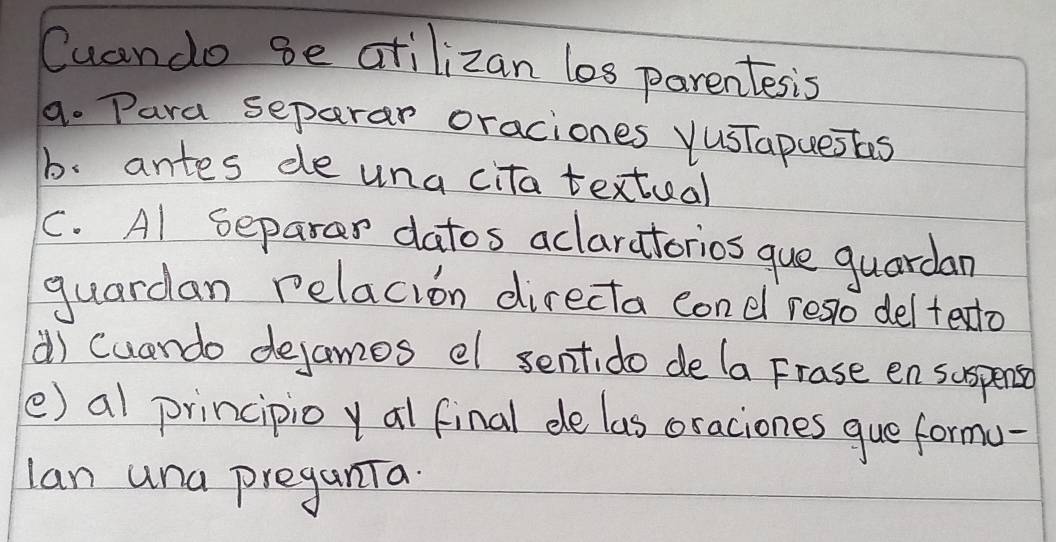 Cuando se atilizan los parentesis
a. Para separar oraciones yustapuestas
b. antes de una cita textual
C. Al separar datos aclaratorios que guardan
guardan relación directa con el resto del texto
d) Cuando dejamos el sentido de la Frase en suspenso
e) al principio y al final de las oraciones que formu-
lan una pregunta.